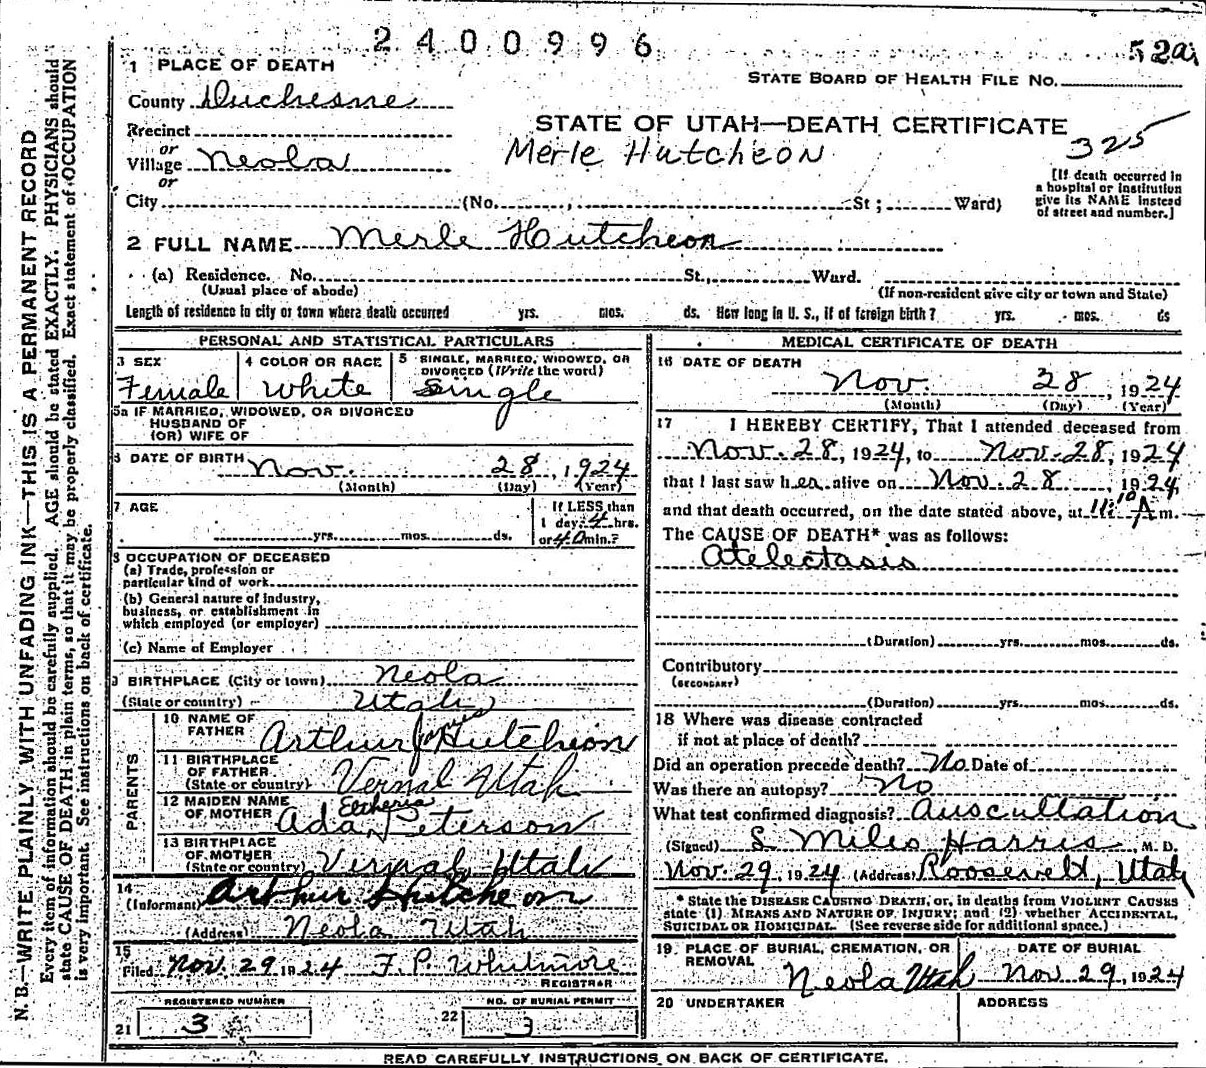 2400996
52a
1 PLACE OF DEATH
STATE BOARD OF HEALTH FILE NO.
County Duchesne
STATE OF UTAH—DEATH CERTIFICATE
Precinct
or
Merle Hutcheon
325
Village Neola
or
[If death occurred in
a hospital or institution
give its NAME instead
of street and number.]
City (No. , St ; Ward)
2 FULL NAME Merle Hutcheon
(a) Residence. No. St., Ward.
(Usual place of abode)
(If non-resident give city or town and State)
Length of residence in city or town where death occurred yrs. mos. ds. How long in U. S., if of foreign birth? yrs. mos. ds
PERSONAL AND STATISTICAL PARTICULARS
3 SEX
Female
4 COLOR OR RACE
White
5 SINGLE, MARRIED, WIDOWED, OR
DIVORCED (Write the word)
Single
5a IF MARRIED, WIDOWED, OR DIVORCED
HUSBAND OF
(OR) WIFE OF
6 DATE OF BIRTH Nov. 28, 1924
(Month) (Day) (Year)
7 AGE
yrs. mos. ds.
If LESS than
1 day, 4 hrs.
or 40 min.?
8 OCCUPATION OF DECEASED
(a) Trade, profession or
particular kind of work
(b) General nature of industry,
business, or establishment in
which employed (or employer)
(c) Name of Employer
9 BIRTHPLACE (City or town) Neola
(State or country) Utah
PARENTS
10 NAME OF
FATHER Arthur James Hutcheon
11 BIRTHPLACE
OF FATHER
(State or country) Vernal Utah
12 MAIDEN NAME
OF MOTHER Ada Peterson
13 BIRTHPLACE
OF MOTHER
(State or country) Vernal Utah
14
(Informant) Arthur Hutcheon
(Address) Neola Utah
15
Filed Nov. 29 1924 F. P. Whitmore
REGISTRAR
REGISTERED NUMBER
21 3
NO. OF BURIAL PERMIT
22 3
MEDICAL CERTIFICATE OF DEATH
16 DATE OF DEATH
Nov. 28, 1924
(Month) (Day) (Year)
17 I HEREBY CERTIFY, That I attended deceased from
Nov. 28, 1924, to Nov. 28, 1924
that I last saw her alive on Nov. 28, 1924,
and that death occurred, on the date stated above, at 11:10 A m.
The CAUSE OF DEATH* was as follows:
Atelectasis
(Duration) yrs. mos. ds.
Contributory
(SECONDARY)
(Duration) yrs. mos. ds.
18 Where was disease contracted
if not at place of death?
Did an operation precede death? No Date of
Was there an autopsy? No
What test confirmed diagnosis? Auscultation
(Signed) L Miles Harris M. D.
Nov. 29, 1924 (Address) Roosevelt, Utah
* State the DISEASE CAUSING DEATH, or, in deaths from VIOLENT CAUSES
state (1) MEANS AND NATURE OF INJURY; and (2) whether ACCIDENTAL,
SUICIDAL OR HOMICIDAL. (See reverse side for additional space.)
19 PLACE OF BURIAL, CREMATION, OR
REMOVAL
Neola Utah
DATE OF BURIAL
Nov 29, 1924
20 UNDERTAKER
ADDRESS
READ CAREFULLY INSTRUCTIONS ON BACK OF CERTIFICATE.
N. B.—WRITE PLAINLY, WITH UNFADING INK—THIS IS A PERMANENT RECORD
Every item of information should be carefully supplied. AGE should be stated EXACTLY. PHYSICIANS should
state CAUSE OF DEATH in plain terms, so that it may be properly classified. Exact statement of OCCUPATION
is very important. See instructions on back of certificate.